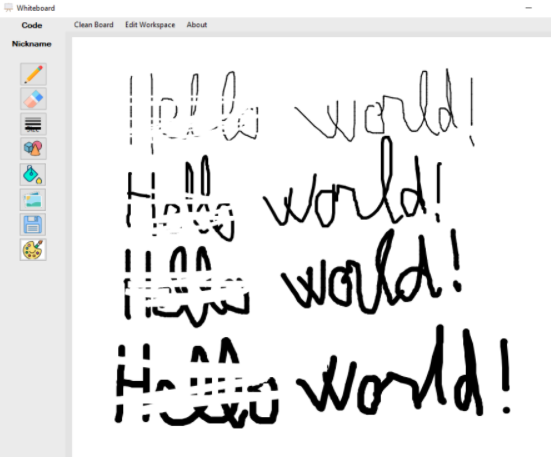 Whiteboard
Code
Clean Board Edit Workspace About
Nickname
Hello world!
Hello world!
Hello world!
Hello world!